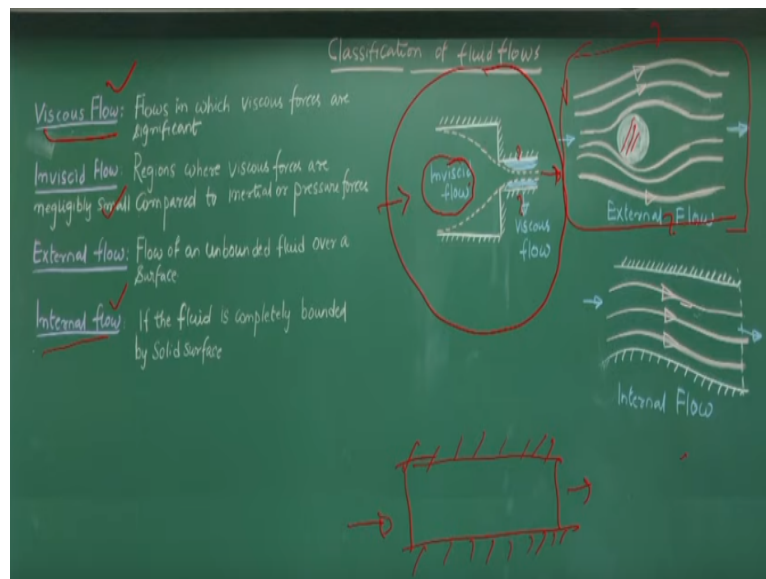 Classification of fluid flows
Viscous Flow: Flows in which viscous forces are
significant
Inviscid Flow: Regions where viscous forces are
negligibly small compared to inertial or pressure forces
External flow: Flow of an unbounded fluid over a
surface
Internal flow: If the fluid is completely bounded
by solid surface
Inviscid
flow
viscous
flow
External Flow
Internal Flow